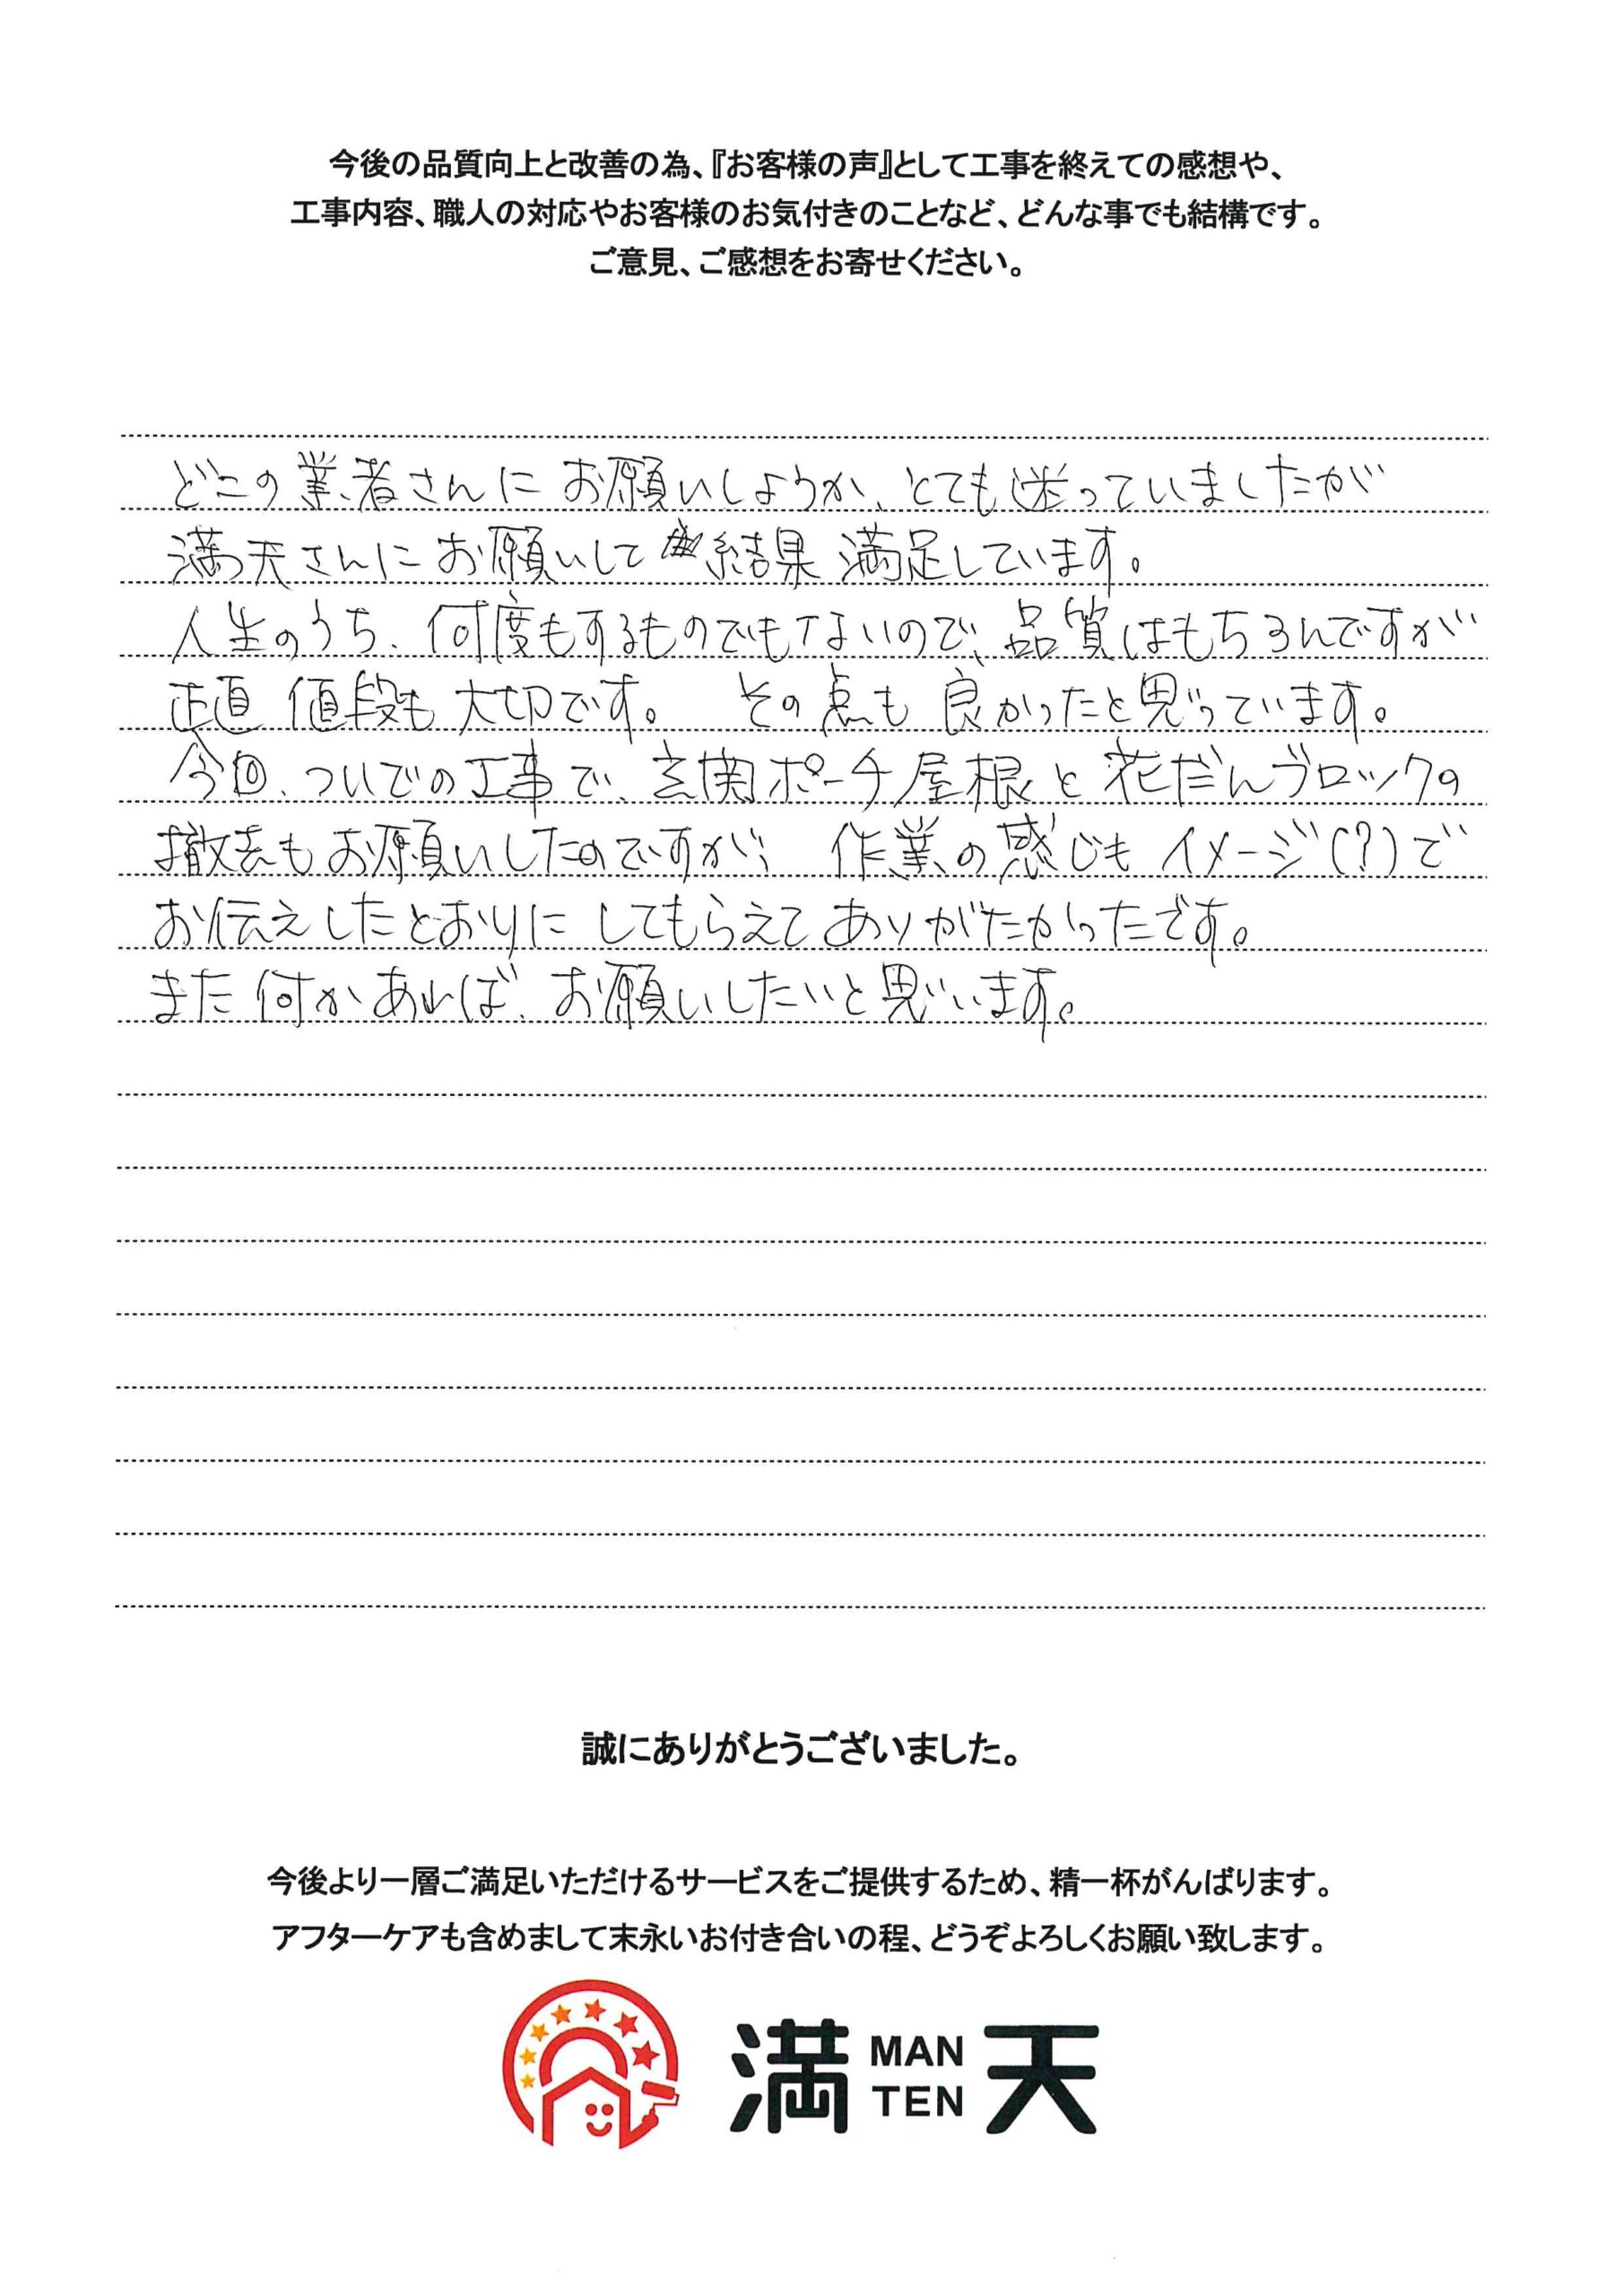 今後の品質向上と改善の為、『お客様の声』として工事を終えての感想や、
工事内容、職人の対応やお客様のお気付きのことなど、どんな事でも結構です。
ご意見、ご感想をお寄せください。
どこの業者さんにお願いしようか、とても迷っていましたが
満天さんにお願いして結果満足しています。
人生のうち、何度もするものでもないので、品質はもちろんですが
正直 値段も大切です。 その点も良かったと思っています。
今回、ついでの工事で、玄関ポーチ屋根と花だんブロックの
撤去もお願いしたのですが、作業の感じもイメージ(?)で
お伝えしたとおりにしてもらえてありがたかったです。
また何かあれば、お願いしたいと思います。
誠にありがとうございました。
今後より一層ご満足いただけるサービスをご提供するため、精一杯がんばります。
アフターケアも含めまして末永いお付き合いの程、どうぞよろしくお願い致します。
満 MAN TEN 天